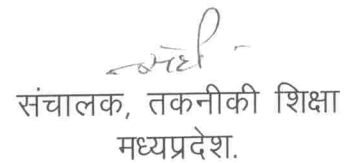 संचालक, तकनीकी शिक्षा
मध्यप्रदेश.